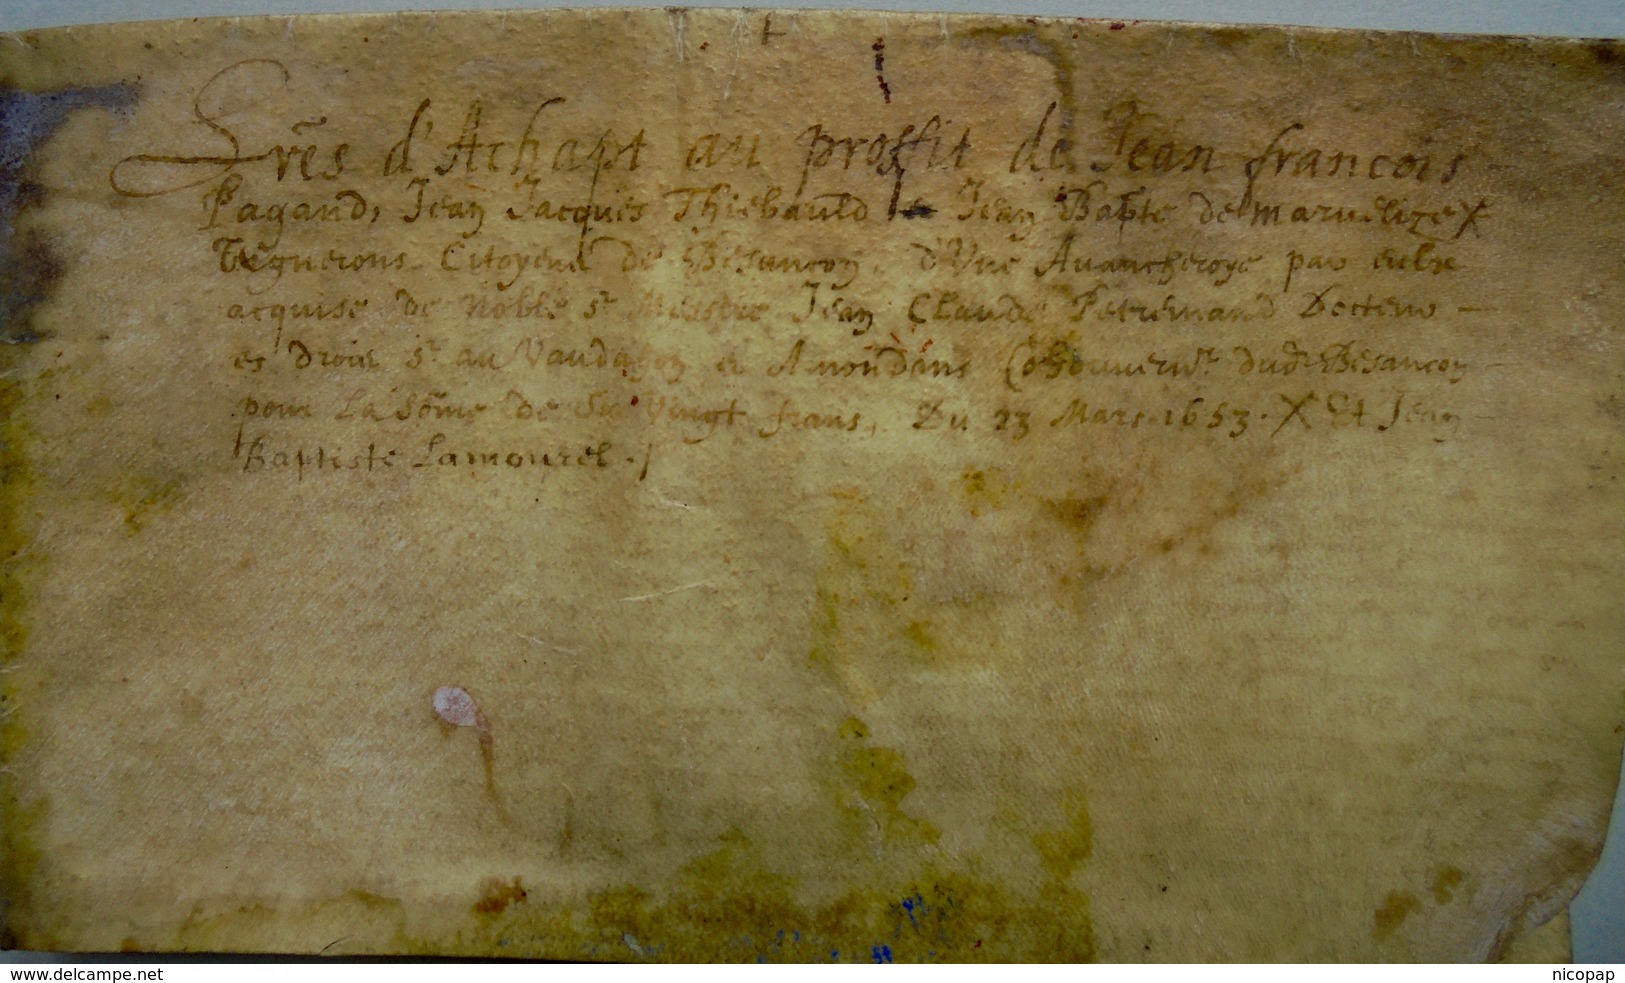 Lrēs d'Achapt au proffit de Jean francois
Pagand, Jean Jacques Thiebauld & Jean Bapte de Maruelize X
Vignerons Citoyens de Besancon, d'Une Auancheroye par eulx
acquise de Noble Sr Messire Jean Claude Petremand Docteur —
es droie Sr au Vaudahon et Amondans Cogouuernr. dud. Besancon —
pour La Sōme de Six Vingt frans, Du 23 Mars 1653. X Et Jean —
Baptiste Lamourel ./
www.delcampe.net
nicopap